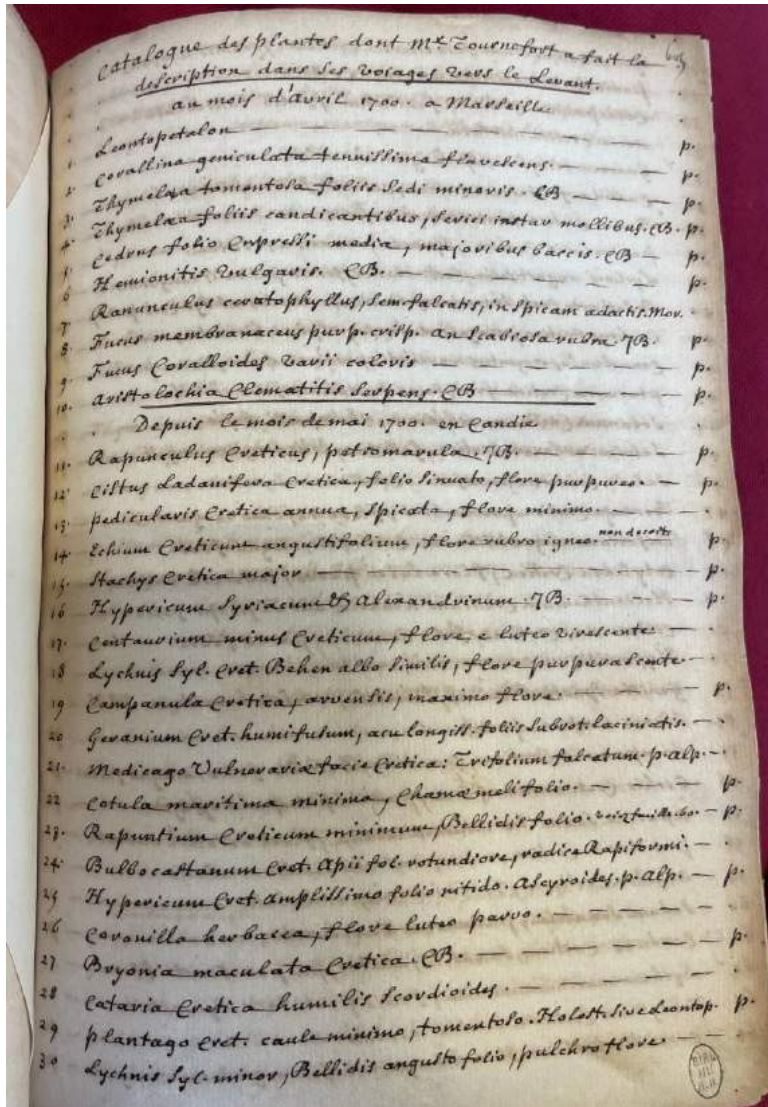 Catalogue des plantes dont Mr. Tournefort a fait la
description dans ses voiages vers le Levant.
au mois d'Avril 1700. a Marseille
1. Leontopetalon — p.
2. Corallina geniculata tenuissima flavescens. — p.
3. Thymelæa tomentosa foliis Sedi minoris. CB — p.
4. Thymelæa foliis candicantibus, Serici instar mollibus. CB. p.
5. Cedrus folio Cupressi media, majoribus baccis. CB — p.
6 Hemionitis vulgaris. CB. — p.
7. Ranunculus ceratophyllus, Sem. falcatis, in Spicam adactis. Mor.
8. Fucus membranaceus purp. crisp. an Scabiosa rubra JB. p.
9. Fucus Coralloides varii coloris — p.
10. Aristolochia Clematitis Serpens. CB — p.
Depuis le mois de mai 1700. en Candie
11. Rapunculus Creticus, petromarula. JB. — p.
12. Cistus Ladanifera Cretica, folio sinuato, flore purpureo. — p.
13. pedicularis Cretica annua, Spicata, flore minimo. —
14. Echium Creticum angustifolium, flore rubro igneo. p.
15. Stachys Cretica major — p.
16 Hypericum Syriacum & Alexandrinum. JB — p.
17. Centaurium minus Creticum, flore e luteo virescente —
18 Lychnis Syl. Cret. Behen albo Similis, flore purpurascente —
19 Campanula Cretica, arvensis, maximo flore. — p.
20 Geranium Cret. humifusum, acu longiss. foliis Subrot. laciniatis. —
21. Medicago Vulnerariæ facie Cretica: Trifolium falcatum. p. Alp. —
22 Cotula maritima minima, Chamæmeli folio. — p.
23. Rapuntium Creticum minimum, Bellidis folio. — p.
24. Bulbocastanum Cret. Apii fol. rotundiore, radice Rapiformi. —
25 Hypericum Cret. amplissimo folio nitido. Ascyroides. p. Alp. — p.
26 Coronilla herbacea, flore luteo parvo. —
27 Bryonia maculata Cretica. CB. — p.
28 Cataria Cretica humilis Scordioides. —
29 plantago Cret. caule minimo, tomentoso. Holost. Sive Leontop. p.
30 Lychnis Syl. minor, Bellidis angusto folio, pulchro flore —